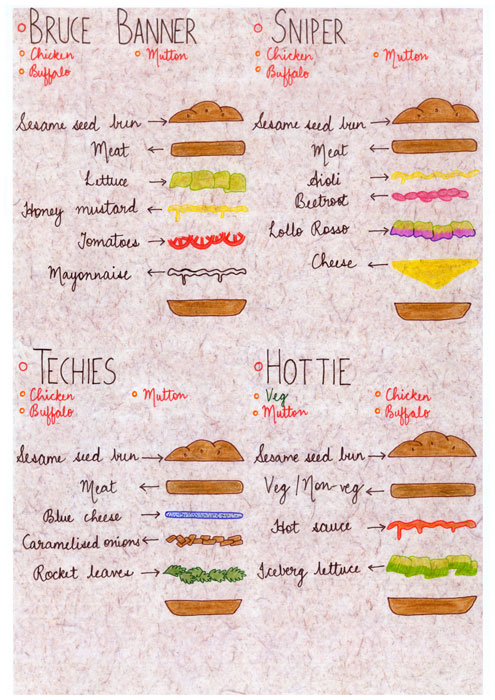 BRUCE BANNER
Chicken
Mutton
Buffalo
Sesame seed bun
Meat
Lettuce
Honey mustard
Tomatoes
Mayonnaise
SNIPER
Chicken
Mutton
Buffalo
Sesame seed bun
Meat
Aioli
Beetroot
Lollo Rosso
Cheese
TECHIES
Chicken
Mutton
Buffalo
Sesame seed bun
Meat
Blue cheese
Caramelised onions
Rocket leaves
HOTTIE
Veg
Chicken
Mutton
Buffalo
Sesame seed bun
Veg/Non-veg
Hot sauce
Iceberg lettuce